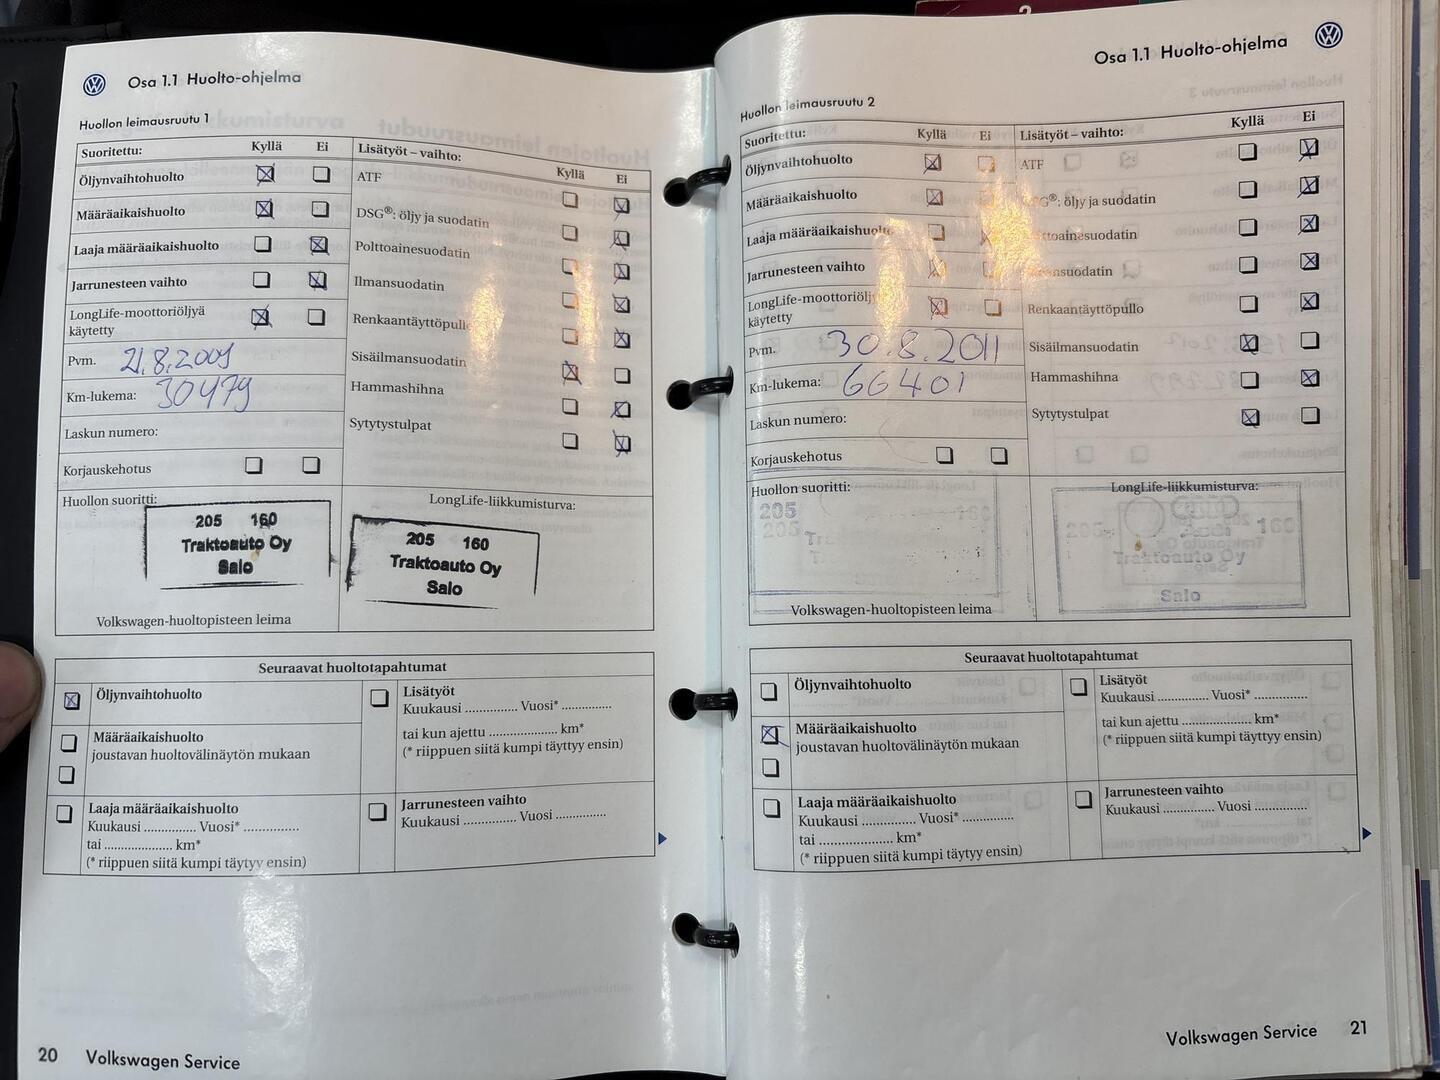 Osa 1.1 Huolto-ohjelma
Huollon leimausruutu 1
Suoritettu: Kyllä Ei
Öljynvaihtohuolto
Määräaikaishuolto
Laaja määräaikaishuolto
Jarrunesteen vaihto
LongLife-moottoriöljyä
käytetty
Pvm. 21.8.2009
Km-lukema: 30479
Laskun numero:
Korjauskehotus
Lisätyöt – vaihto:
Kyllä Ei
ATF
DSG®: öljy ja suodatin
Polttoainesuodatin
Ilmansuodatin
Renkaantäyttöpullo
Sisäilmansuodatin
Hammashihna
Sytytystulpat
Huollon suoritti:
205 160
Traktoauto Oy
Salo
Volkswagen-huoltopisteen leima
LongLife-liikkumisturva:
205 160
Traktoauto Oy
Salo
Seuraavat huoltotapahtumat
Öljynvaihtohuolto
Määräaikaishuolto
joustavan huoltovälinäytön mukaan
Laaja määräaikaishuolto
Kuukausi .............. Vuosi* ...............
tai .................... km*
(* riippuen siitä kumpi täytyy ensin)
Lisätyöt
Kuukausi .............. Vuosi* ..............
tai kun ajettu .................... km*
(* riippuen siitä kumpi täyttyy ensin)
Jarrunesteen vaihto
Kuukausi .............. Vuosi ..............
20 Volkswagen Service
Osa 1.1 Huolto-ohjelma
Huollon leimausruutu 2
Suoritettu: Kyllä Ei
Öljynvaihtohuolto
Määräaikaishuolto
Laaja määräaikaishuolto
Jarrunesteen vaihto
LongLife-moottoriöljy
käytetty
Pvm. 30.8.2011
Km-lukema: 66401
Laskun numero:
Korjauskehotus
Lisätyöt – vaihto: Kyllä Ei
ATF
öljy ja suodatin
Renkaantäyttöpullo
Sisäilmansuodatin
Hammashihna
Sytytystulpat
Huollon suoritti:
205
Volkswagen-huoltopisteen leima
LongLife-liikkumisturva:
205 160
Traktoauto Oy
Salo
Seuraavat huoltotapahtumat
Öljynvaihtohuolto
Määräaikaishuolto
joustavan huoltovälinäytön mukaan
Laaja määräaikaishuolto
Kuukausi .............. Vuosi* ..............
tai .................... km*
(* riippuen siitä kumpi täytyy ensin)
Lisätyöt
Kuukausi .............. Vuosi* ..............
tai kun ajettu .................... km*
(* riippuen siitä kumpi täyttyy ensin)
Jarrunesteen vaihto
Kuukausi .............. Vuosi ..............
Volkswagen Service 21